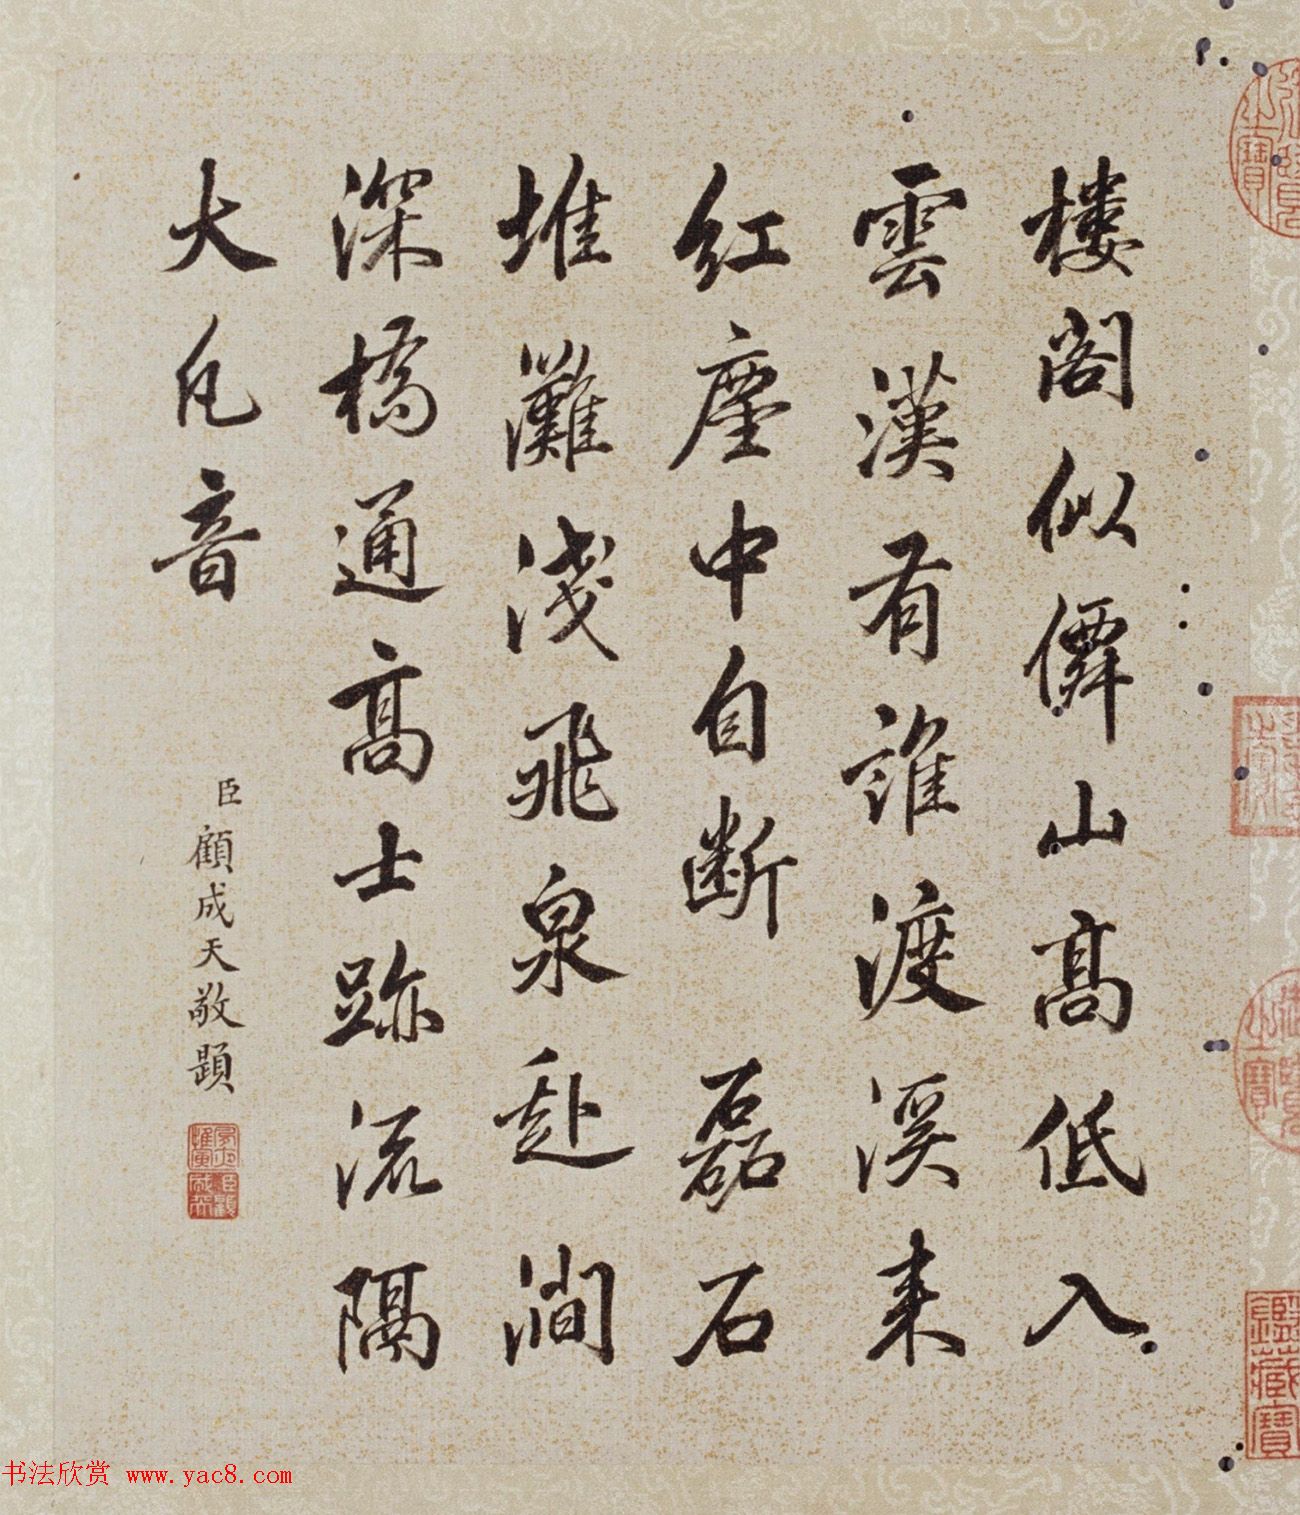 楼阁似僊山高低入
雲漢有誰渡溪来
红塵中自断 磊石
堆灘浅飛泉赴澗
深橋通高士跡流隔
大凡音
臣顧成天敬題
鑑藏寶
书法欣赏 www.yac8.com